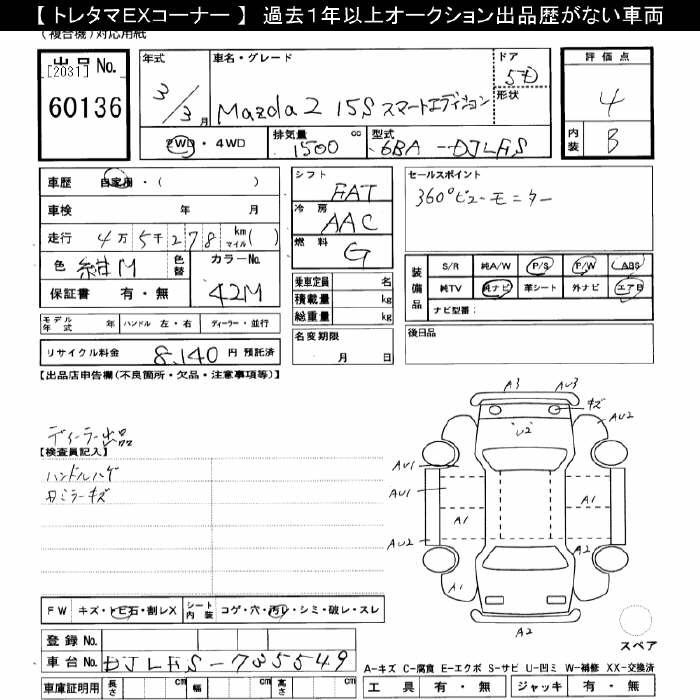 【 トレタマEXコーナー 】 過去1年以上オークション出品歴がない車両
(複合機)対応用紙
出品No.
[2031]
60136
年式
3/3月
車名・グレード
Mazda2 15S スマートエディション
ドア
5D
形状
評価点
4
内装
B
2WD・4WD
排気量
1500
cc
型式
6BA-DJLFS
車歴 自家用・( )
車検 年 月
走行 4万5千278 km マイル( )
色 紺M
色替
カラーNo.
42M
保証書 有・無
シフト
FAT
冷房
AAC
燃料
G
乗車定員 名
積載量 kg
総重量 kg
セールスポイント
360°ビューモニター
装備品
S/R 純A/W P/S P/W ABS
純TV 純ナビ 革シート 外ナビ エアB
ナビ型番:
モデル年式 年 ハンドル 左・右 ディーラー・並行
リサイクル料金 8,140 円 預託済
名変期限
月 日
後日品
【出品店申告欄(不良箇所・欠品・注意事項等)】
ディーラー出品
【検査員記入】
ハンドルハゲ
カミラーキズ
A3
AU3
キズ
AU2
U2
AU1
AU1
A1
A1
AU2
A2
A1
A2
スペア
FW キズ・トビ石・割レX
シート内装
コゲ・穴・汚レ・シミ・破レ・スレ
登録No.
車台No. DJLFS-735549
車庫証明用 長さ cm 幅 cm 高さ cm
A-キズ C-腐食 E-エクボ S-サビ U-凹ミ W-補修 XX-交換済
工具 有・無 ジャッキ 有・無